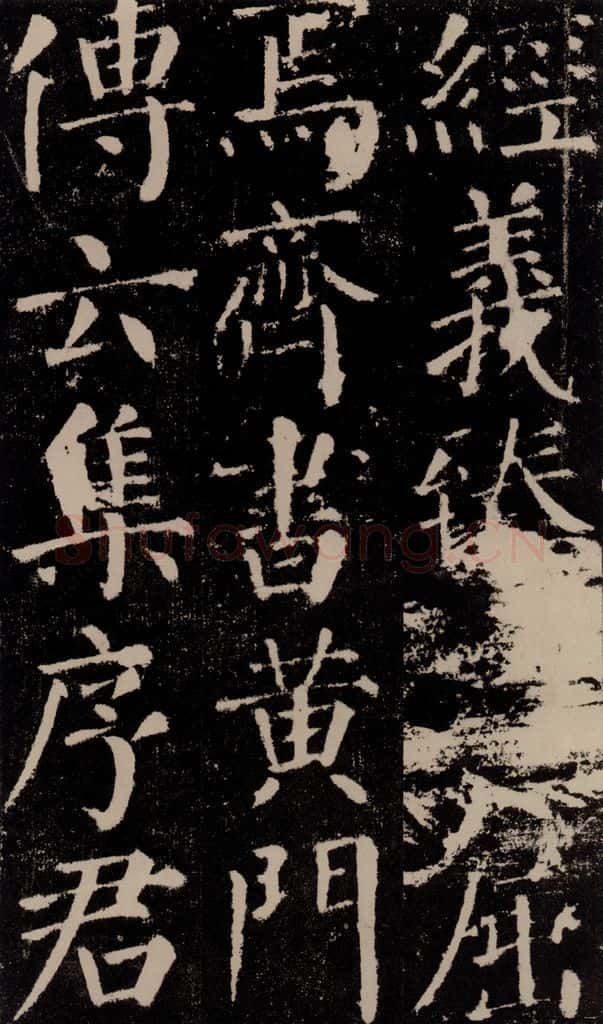 經義臻屈
焉齊書黃門
傳云集序君
Shufawang.CN